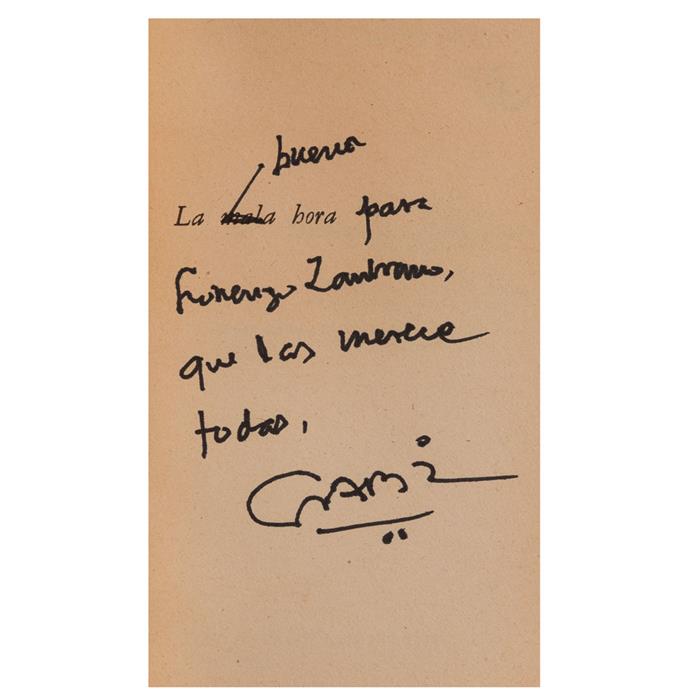 buena
La mala hora para
Lorenzo Zambrano,
que las merece
todas,